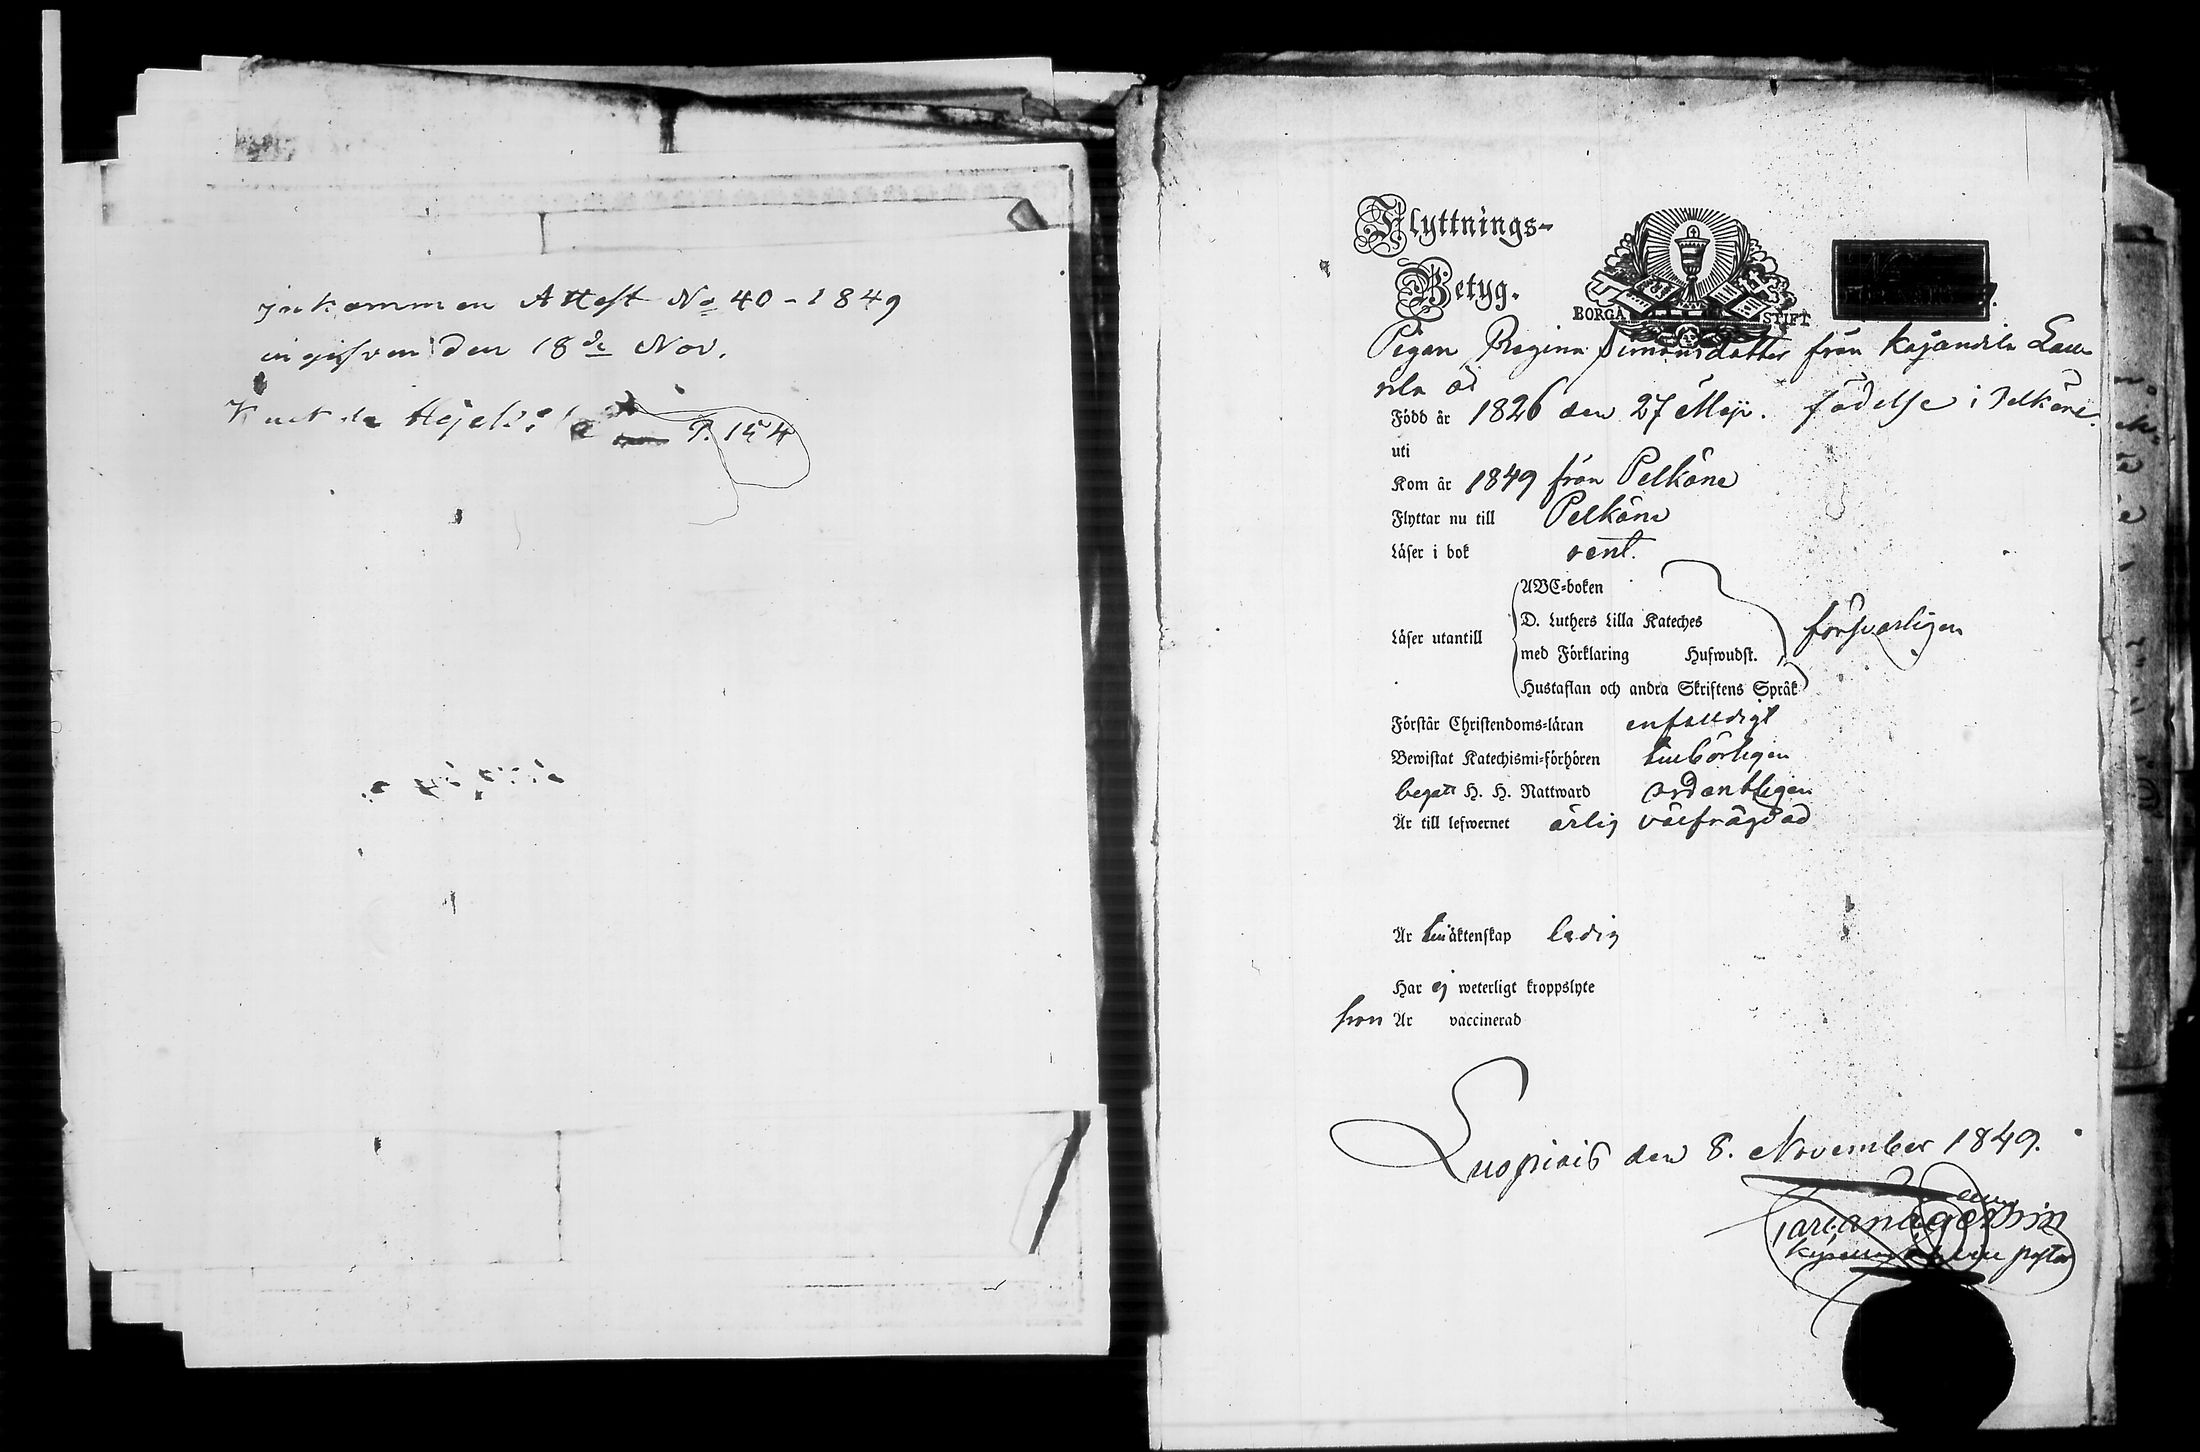 Inkommen Attest No 40 - 1849
ingifven den 18de Nov.
P. 154
Flyttnings-
Betyg.
BORGÅ STIFT
Pigan Regina Simonsdotter från
Född år 1826 den 27 Maji. födelse i Pelkäne.
uti
Kom år 1849 från Pelkäne
Flyttar nu till Pelkäne
Läser i bok rent.
Läser utantill
ABC-boken
D. Luthers Lilla Kateches
med Förklaring Hufwudst.
Hustaflan och andra Skriftens Språk
försvarligen
Förstår Christendoms-läran enfaldigt
Bewistat Katechismi-förhören tillbörligen
begått H. H. Nattward ordentligen
Är till lefwernet ärlig välfrägdad
Är till äktenskap ledig
Har ej weterligt kroppslyte
hon Är vaccinerad
Luopiois den 8. November 1849.